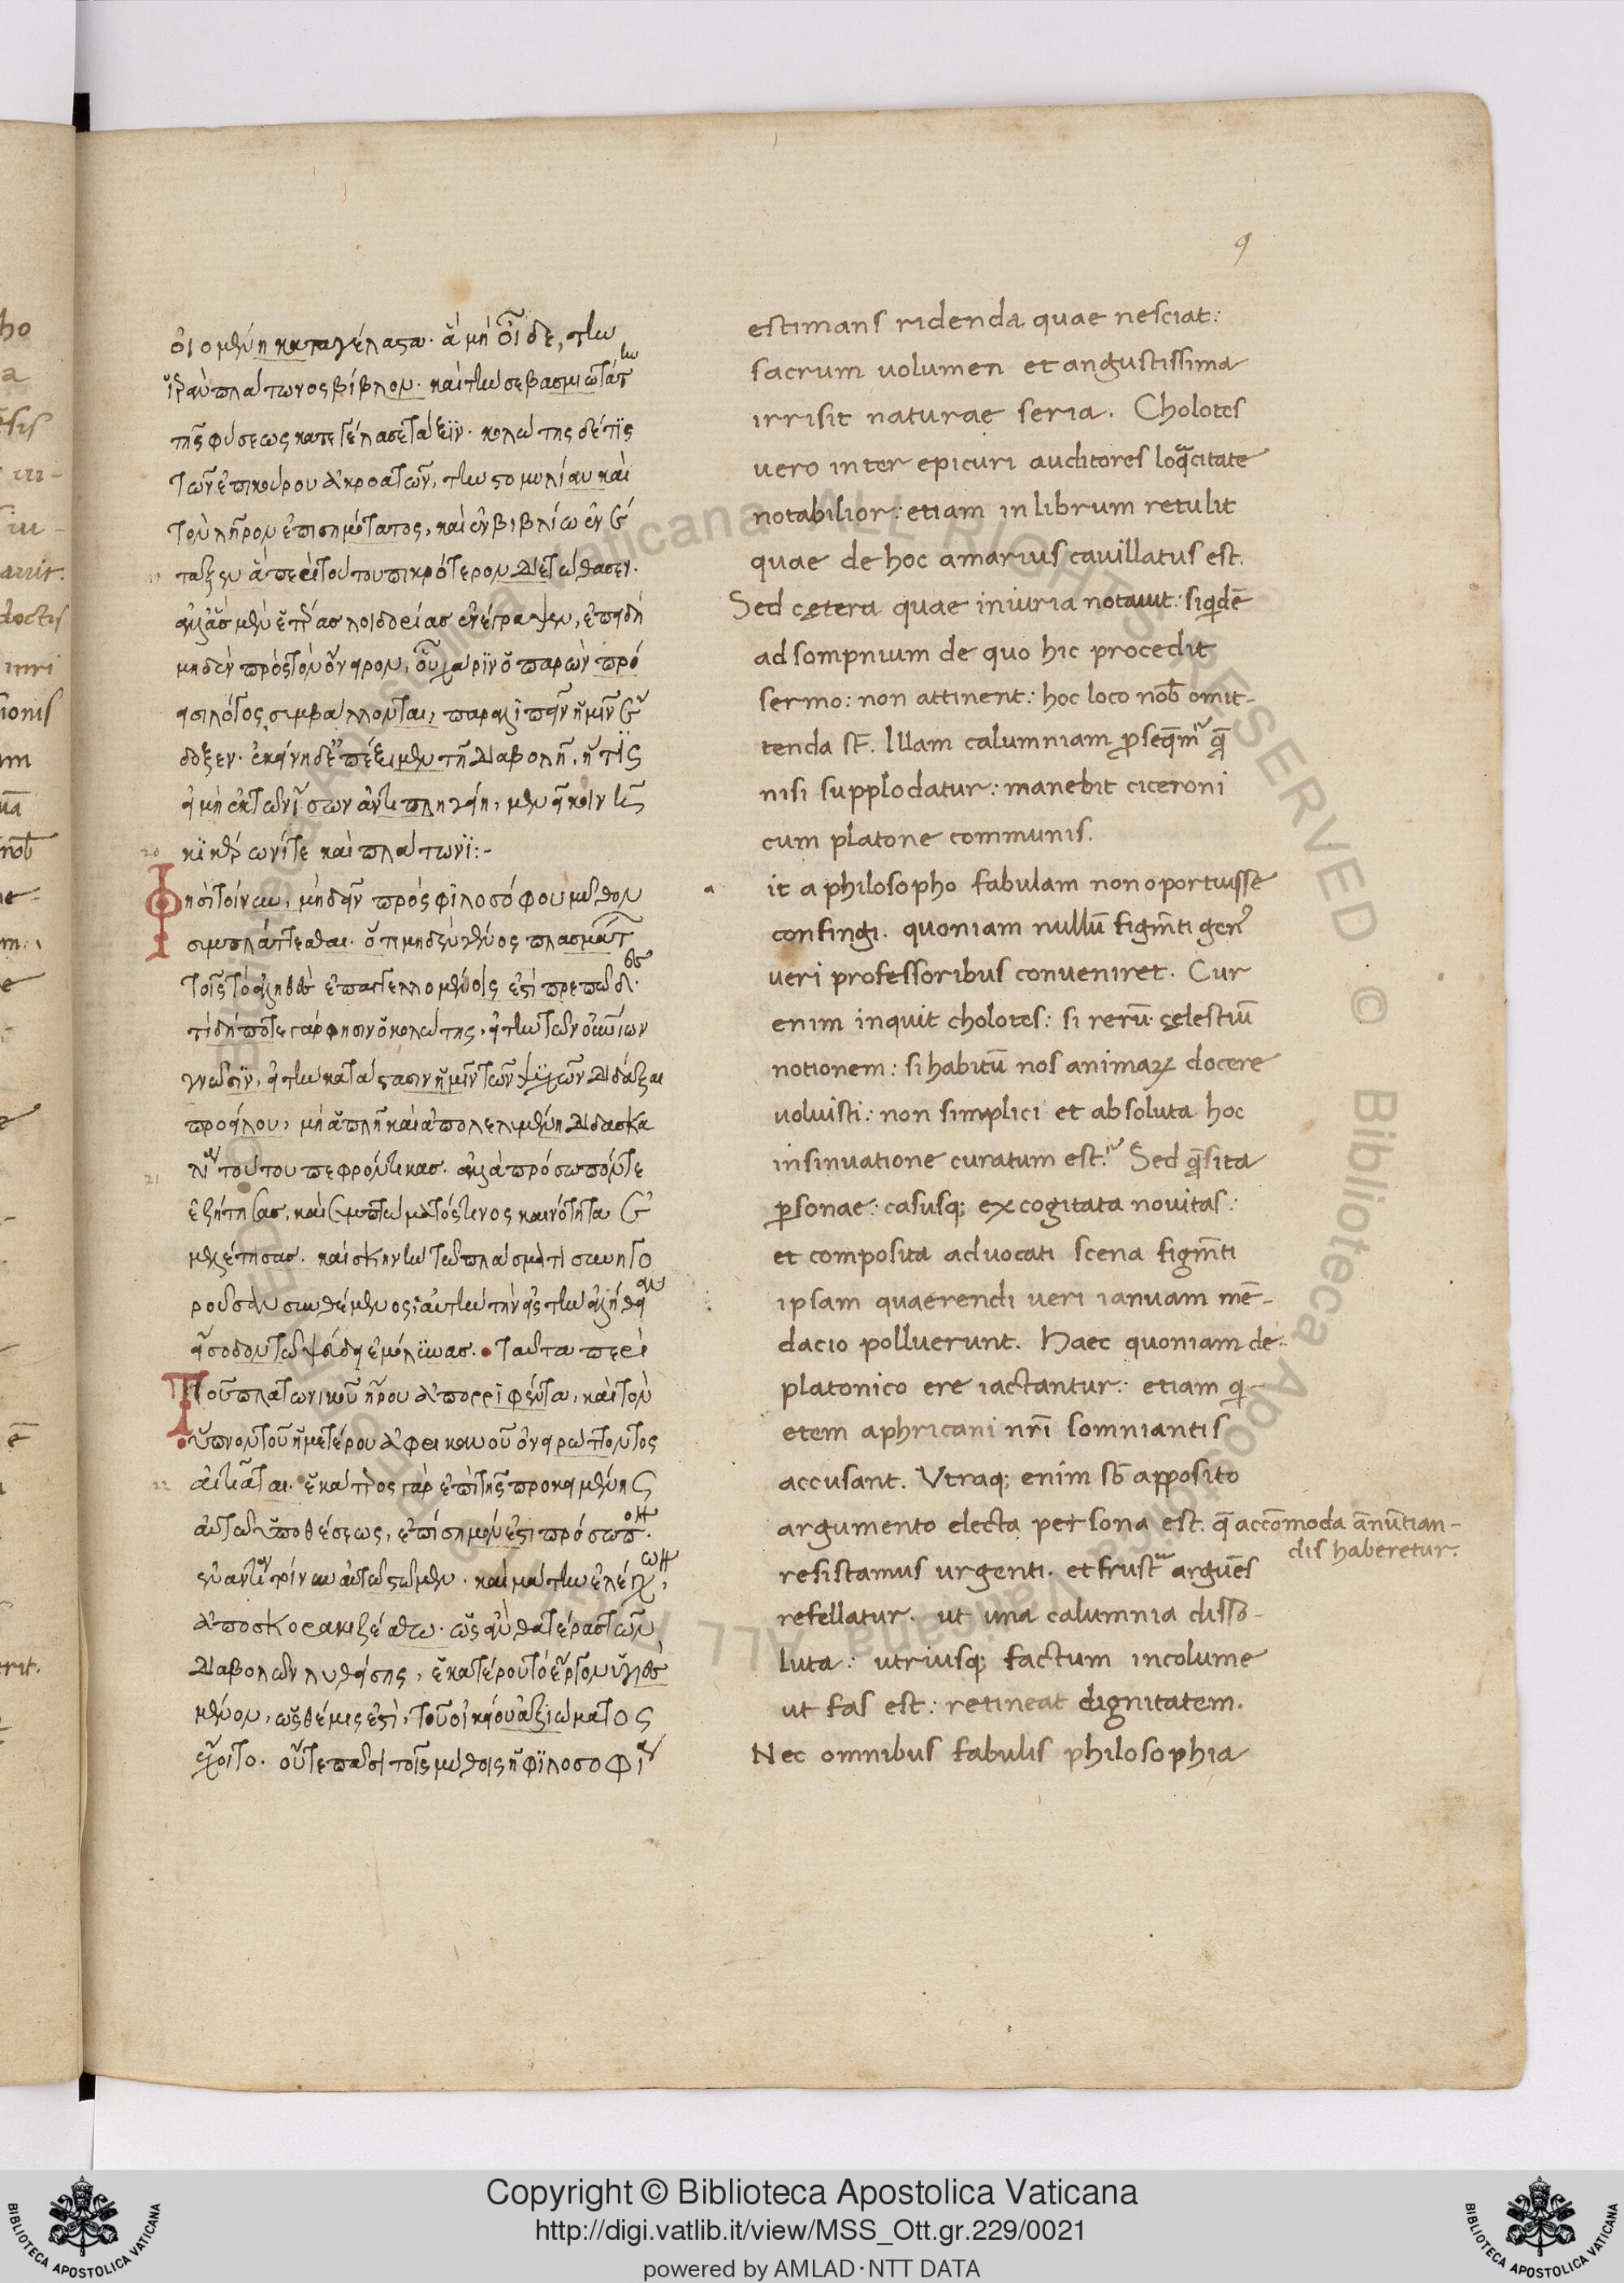 οἰομένη καταγέλαστα. ἃ μὴ οἶδε, τὴν
ἱερὰν πλάτωνος βίβλον. καὶ τὴν σεβασμιωτάτην
τῆς φύσεως κατεγέλασε τάξιν. κολώτης δέ τις
τῶν ἐπικούρου ἀκροατῶν, τὴν στομυλίαν καὶ
τὸν λῆρον ἐπισημότατος, καὶ ἐν βιβλίω ἐνέ
ταξεν ἃ περὶ τούτου πικρότερον διετώθασεν.
ἀλλ' ἃς μὲν ἑτέρας λοιδορείας ἐνέγραψεν, ἐπειδὴ
μηδὲν πρὸς τὸν ὄνειρον, οὗ χάριν ὁ παρὼν πρό
εισι λόγος συμβάλλονται, παραλιπεῖν ἡμῖν ἔ
δοξεν. ἐκείνη δ' ἐπέξιμεν τῆ διαβολῆ, ἥτις
εἰ μὴ ἐκ τῶν ἴσων ἀντιπληγείη, μενεῖ κοινὴ
20 κικέρωνί τε καὶ πλάτωνι:-
Φησὶ τοίνυν, μὴ δεῖν πρὸς φιλοσόφου μῦθον
συμπλάττεσθαι. ὅτι μηδὲν γένος πλάσματος
τοῖς τὸ ἀληθὲς ἐπαγγελλομένοις ἐστὶ πρεπῶδες.
τί δήποτε γάρ φησιν ὁ κολώτης, εἰ τὴν τῶν οὐρανίων
γνῶσιν, εἰ τὴν κατάστασιν ἡμῖν τῶν ψυχῶν διδάξαι
προείλου, μὴ ἁπλῆ καὶ ἀπολελυμένη διδασκα
21 λία τούτου πεφρόντικας. ἀλλὰ πρόσωπόν τε
ἐζήτησας, καὶ συμπτώματός τινος καινότητα ἐ
μελέτησας. καὶ σκηνὴν τῶ πλάσματι συνηγο
ροῦσαν συνθέμενος, αὐτὴν τὴν εἰς τὴν ἀλήθειαν
εἴσοδον τῶ ψεύδει ἐμόλυνας. Ταῦτα περὶ
Τοῦ πλατωνικοῦ ἠρου ἀπορριφέντα, καὶ τὸν
ὕπνον τοῦ ἡμετέρου ἀφρικανοῦ ὀνειρώττοντος
22 αἰτιᾶται. ἑκάτερος γὰρ ἐπὶ τῆς προκειμένης
αὐτῶ ὑποθέσεως, ἐπίσημόν ἐστι πρόσωπον.
ἐναντίον τοίνυν αὐτῶ στῶμεν. καὶ μάτην ἐλέγχων,
ἀποσκορακιζέσθω. ὡς ἂν θατέρας τῶν
διαβολῶν λυθείσης, ἑκατέρου τὸ ἔργον ὑγιὲς
μένον, ὡς θέμις ἐστὶ, τοῦ οἰκείου ἀξιώματος
ἔχοιτο. οὔτε πᾶσι τοῖς μύθοις ἡ φιλοσοφία
9
estimans ridenda quae nesciat:
sacrum uolumen et angustissima
irrisit naturae seria. Cholotes
uero inter epicuri auditores loq̄acitate
notabilior: etiam in librum retulit
quae de hoc amarius cauillatus est.
Sed cętera quae iniuria notauit: siqidē
ad sompnium de quo hic procedit
sermo: non attinent: hoc loco nob̄ omit-
tenda st̄. Illam calumniam ꝓseq̄mr q̄
nisi supplodatur: manebit ciceroni
cum platone communis.
it a philosopho fabulam non oportuisse
confingi. quoniam nullū figm̄ti genꝰ
ueri professoribus conueniret. Cur
enim inquit cholotes: si rerū cęlestiū
notionem: si habitū nos animaꝝ docere
uoluisti: non simplici et absoluta hoc
insinuatione curatum est: Sed q̄sita
ꝑsonae: casusq; excogitata nouitas:
et composita aduocati scena figm̄ti
ipsam quaerendi ueri ianuam mē-
dacio polluerunt. Haec quoniam de
platonico ere iactantur: etiam qi-
etem aphricani nr̄i somniantis
accusant. Vtraq; enim sb̄ apposito
argumento electa persona est. q̄ accōmoda ānūtian-
dis haberetur.
resistamus urgenti. et frustra arguēs
refellatur. ut una calumnia disso-
luta: utriusq; factum incolume
ut fas est: retineat dignitatem.
Nec omnibus fabulis philosophia
Copyright © Biblioteca Apostolica Vaticana
http://digi.vatlib.it/view/MSS_Ott.gr.229/0021
powered by AMLAD·NTT DATA
BIBLIOTECA APOSTOLICA VATICANA
BIBLIOTECA APOSTOLICA VATICANA